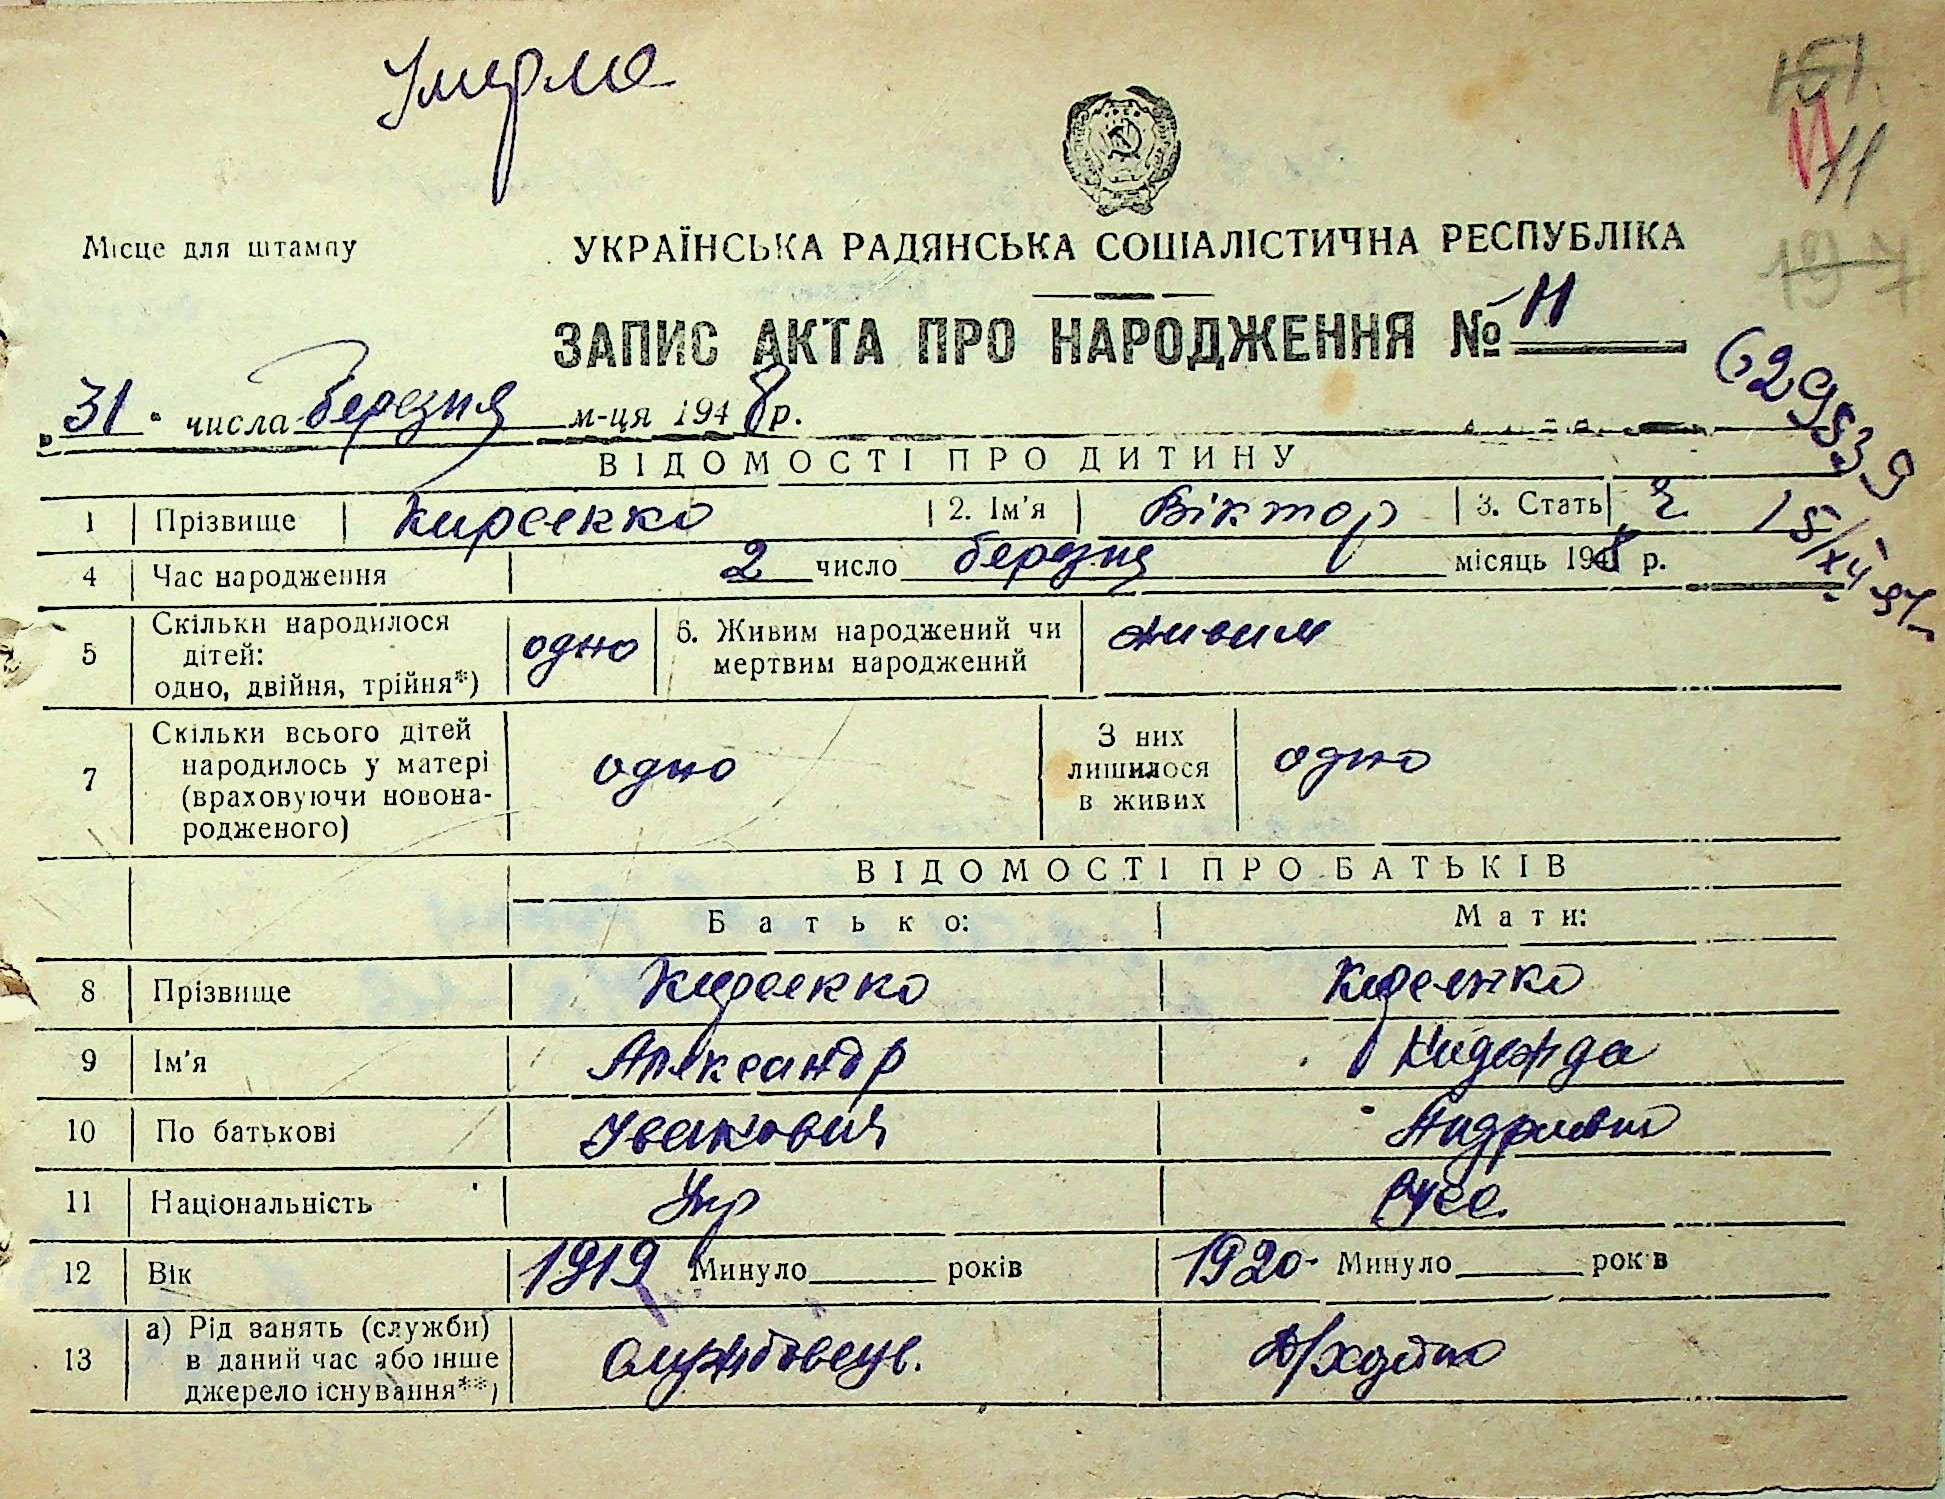 151.
11
Місце для штампу
УКРАЇНСЬКА РАДЯНСЬКА СОЦІАЛІСТИЧНА РЕСПУБЛІКА
ЗАПИС АКТА ПРО НАРОДЖЕННЯ № 11
31 числа березня м-ця 1948 р.
629539
ВІДОМОСТІ ПРО ДИТИНУ
1 Прізвище Киреенко 2. Ім'я Віктор 3. Стать ч
15/XII
4 Час народження 2 число березня місяць 1948 р.
5 Скільки народилося дітей: одно, двійня, трійня*) одно 6. Живим народжений чи мертвим народжений живим
7 Скільки всього дітей народилось у матері (враховуючи новонародженого) одно З них лишилося в живих одно
ВІДОМОСТІ ПРО БАТЬКІВ
Батько: Мати:
8 Прізвище Киреенко Киреенко
9 Ім'я Александр Надежда
10 По батькові Іванович Андріевна
11 Національність Укр Русс.
12 Вік 1919 Минуло років 1920 Минуло років
13 а) Рід занять (служби) в даний час або інше джерело існування**) службовець. Д/хозяйка